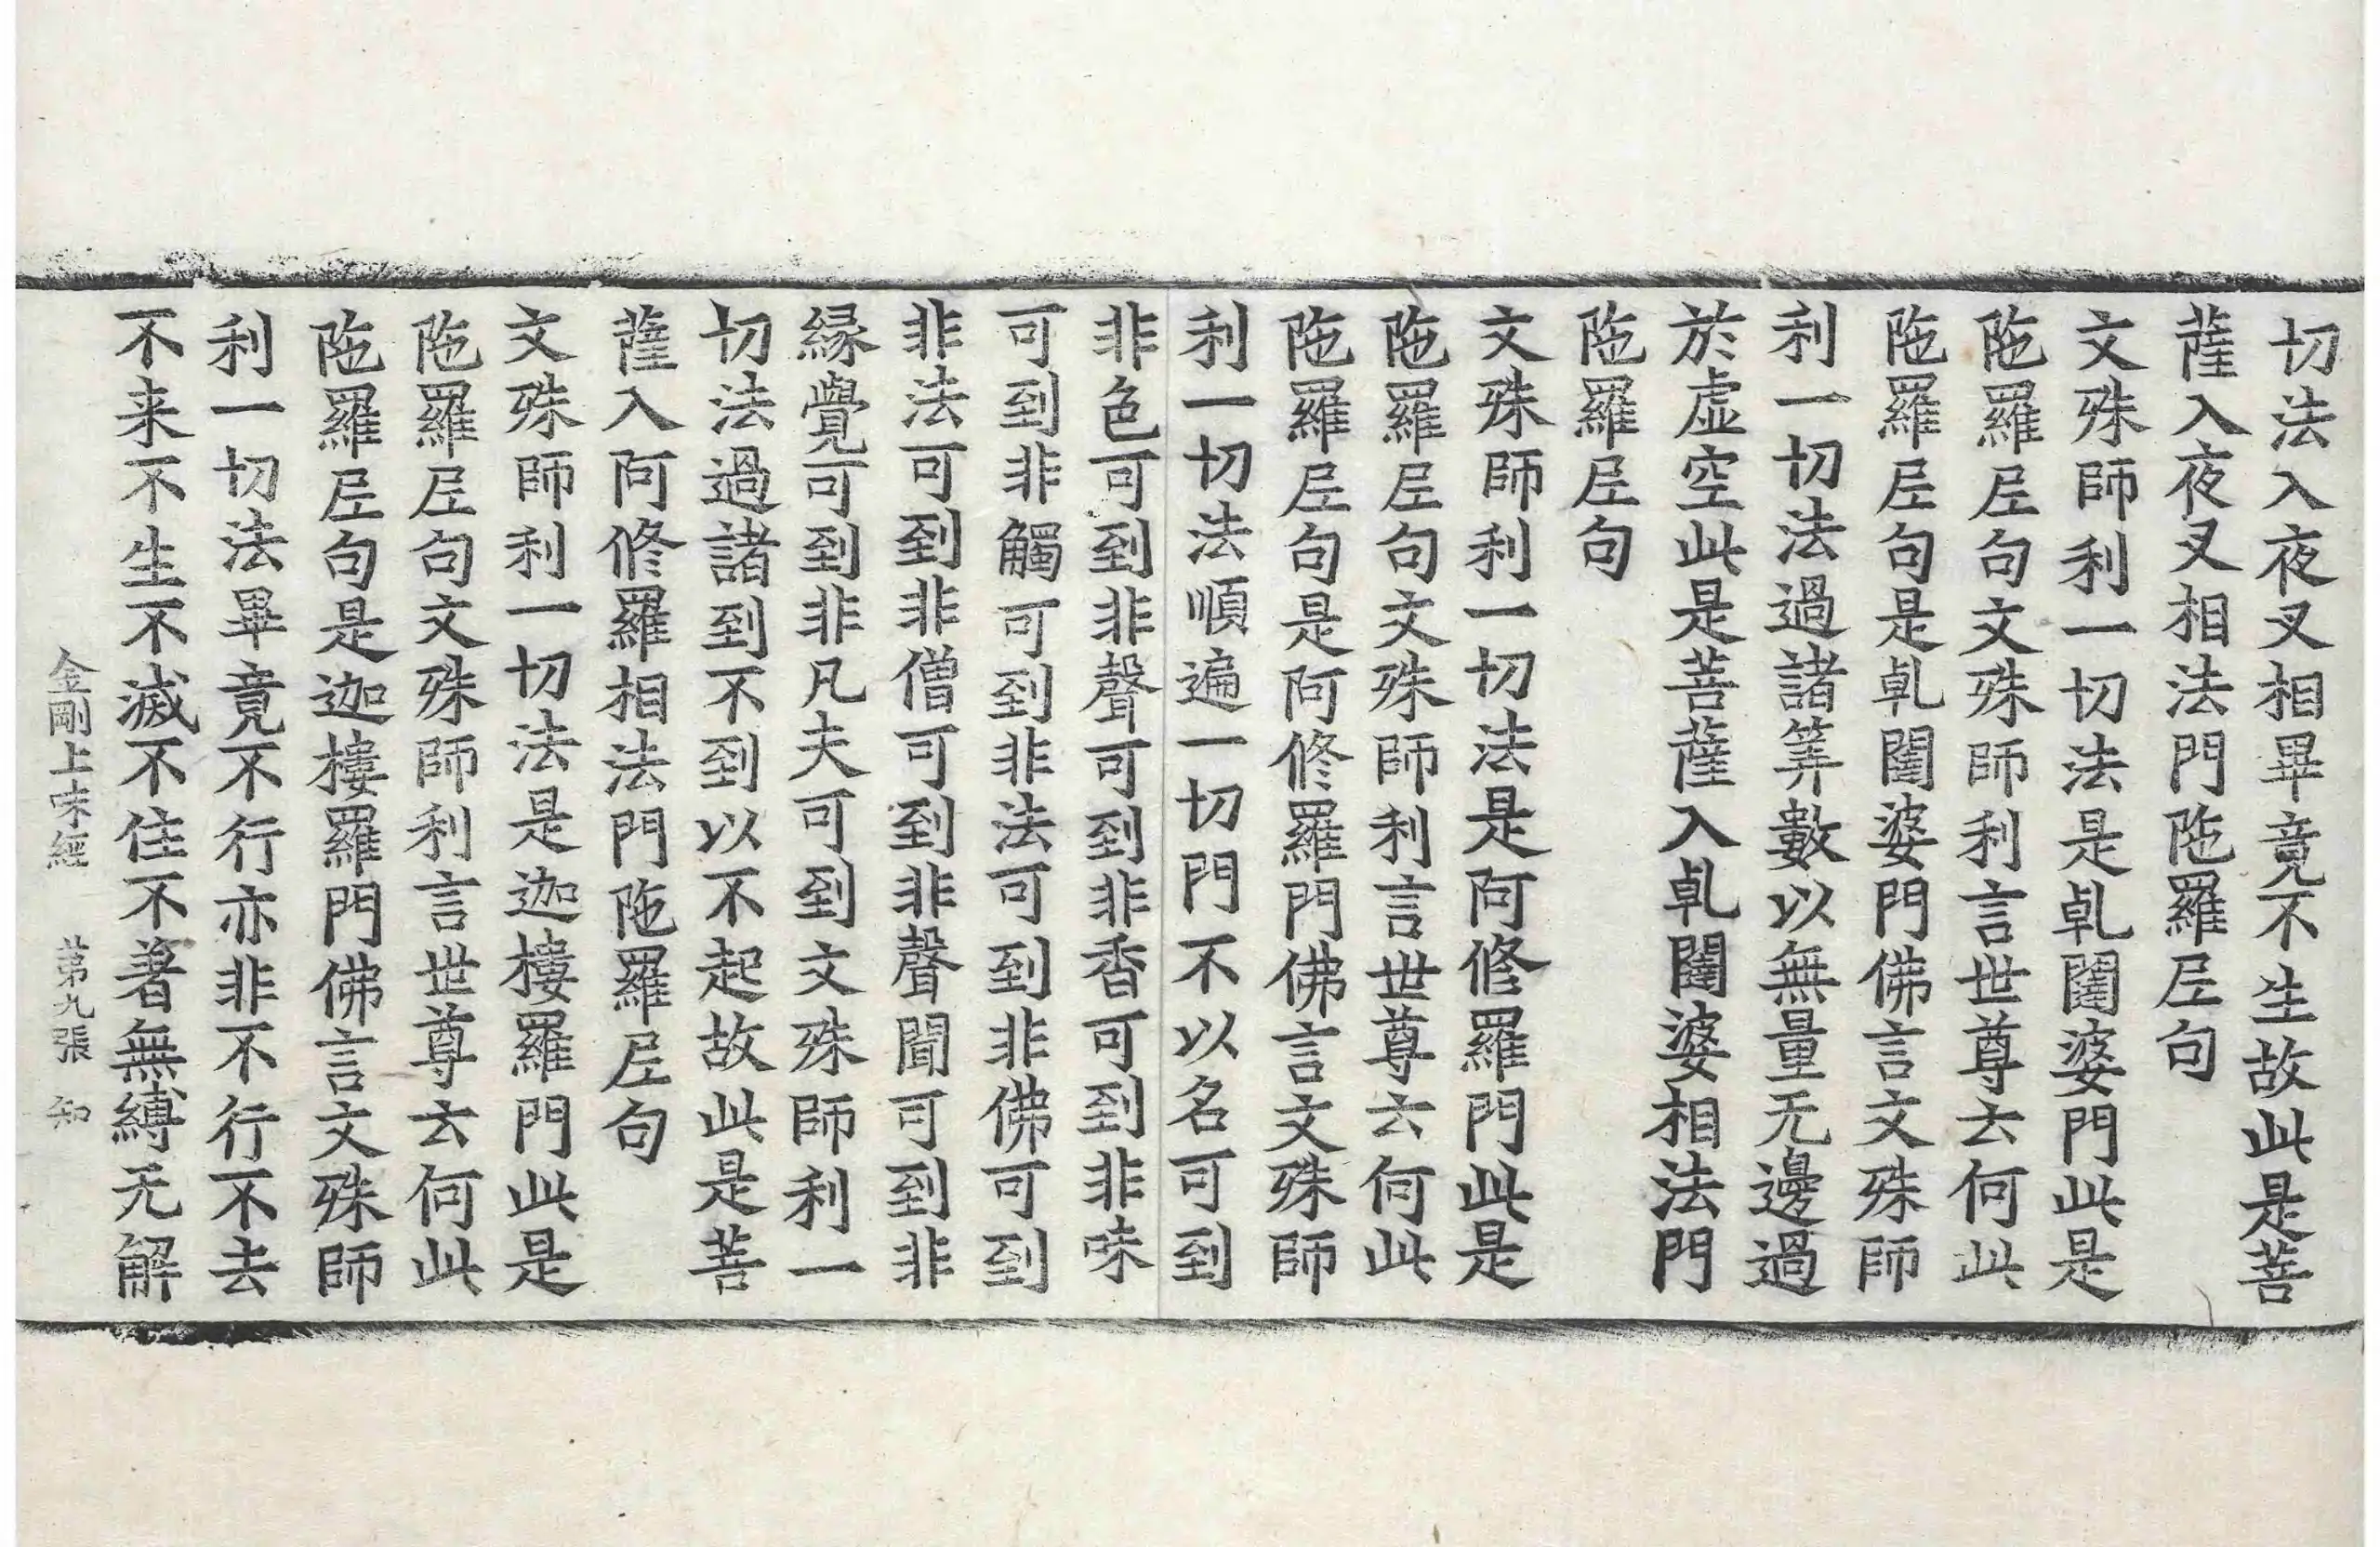 切法入夜叉相畢竟不生故此是菩
薩入夜叉相法門陁羅𡰱句
文殊師利一切法是乹闥婆門此是
陁羅𡰱句文殊師利言世尊云何此
陁羅𡰱句是乹闥婆門佛言文殊師
利一切法過諸筭數以無量无邊過
於虛空此是菩薩入乹闥婆相法門
陁羅𡰱句
文殊師利一切法是阿修羅門此是
陁羅𡰱句文殊師利言世尊云何此
陁羅𡰱句是阿修羅門佛言文殊師
利一切法順遍一切門不以名可到
非色可到非聲可到非香可到非味
可到非觸可到非法可到非佛可到
非法可到非僧可到非聲聞可到非
縁覺可到非凡夫可到文殊師利一
切法過諸到不到以不起故此是菩
薩入阿修羅相法門陁羅𡰱句
文殊師利一切法是迦樓羅門此是
陁羅𡰱句文殊師利言世尊云何此
陁羅𡰱句是迦樓羅門佛言文殊師
利一切法畢竟不行亦非不行不去
不来不生不滅不住不著無縛无解
金剛上末經 苐九張 知